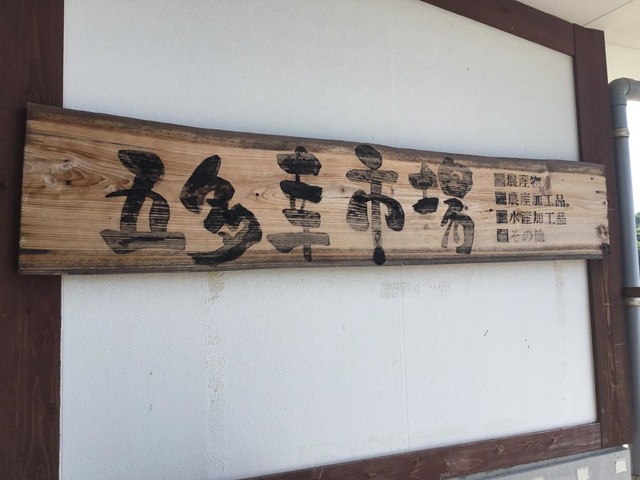 五多幸市場
■農産物
■農産加工品
■水産加工品
■その他